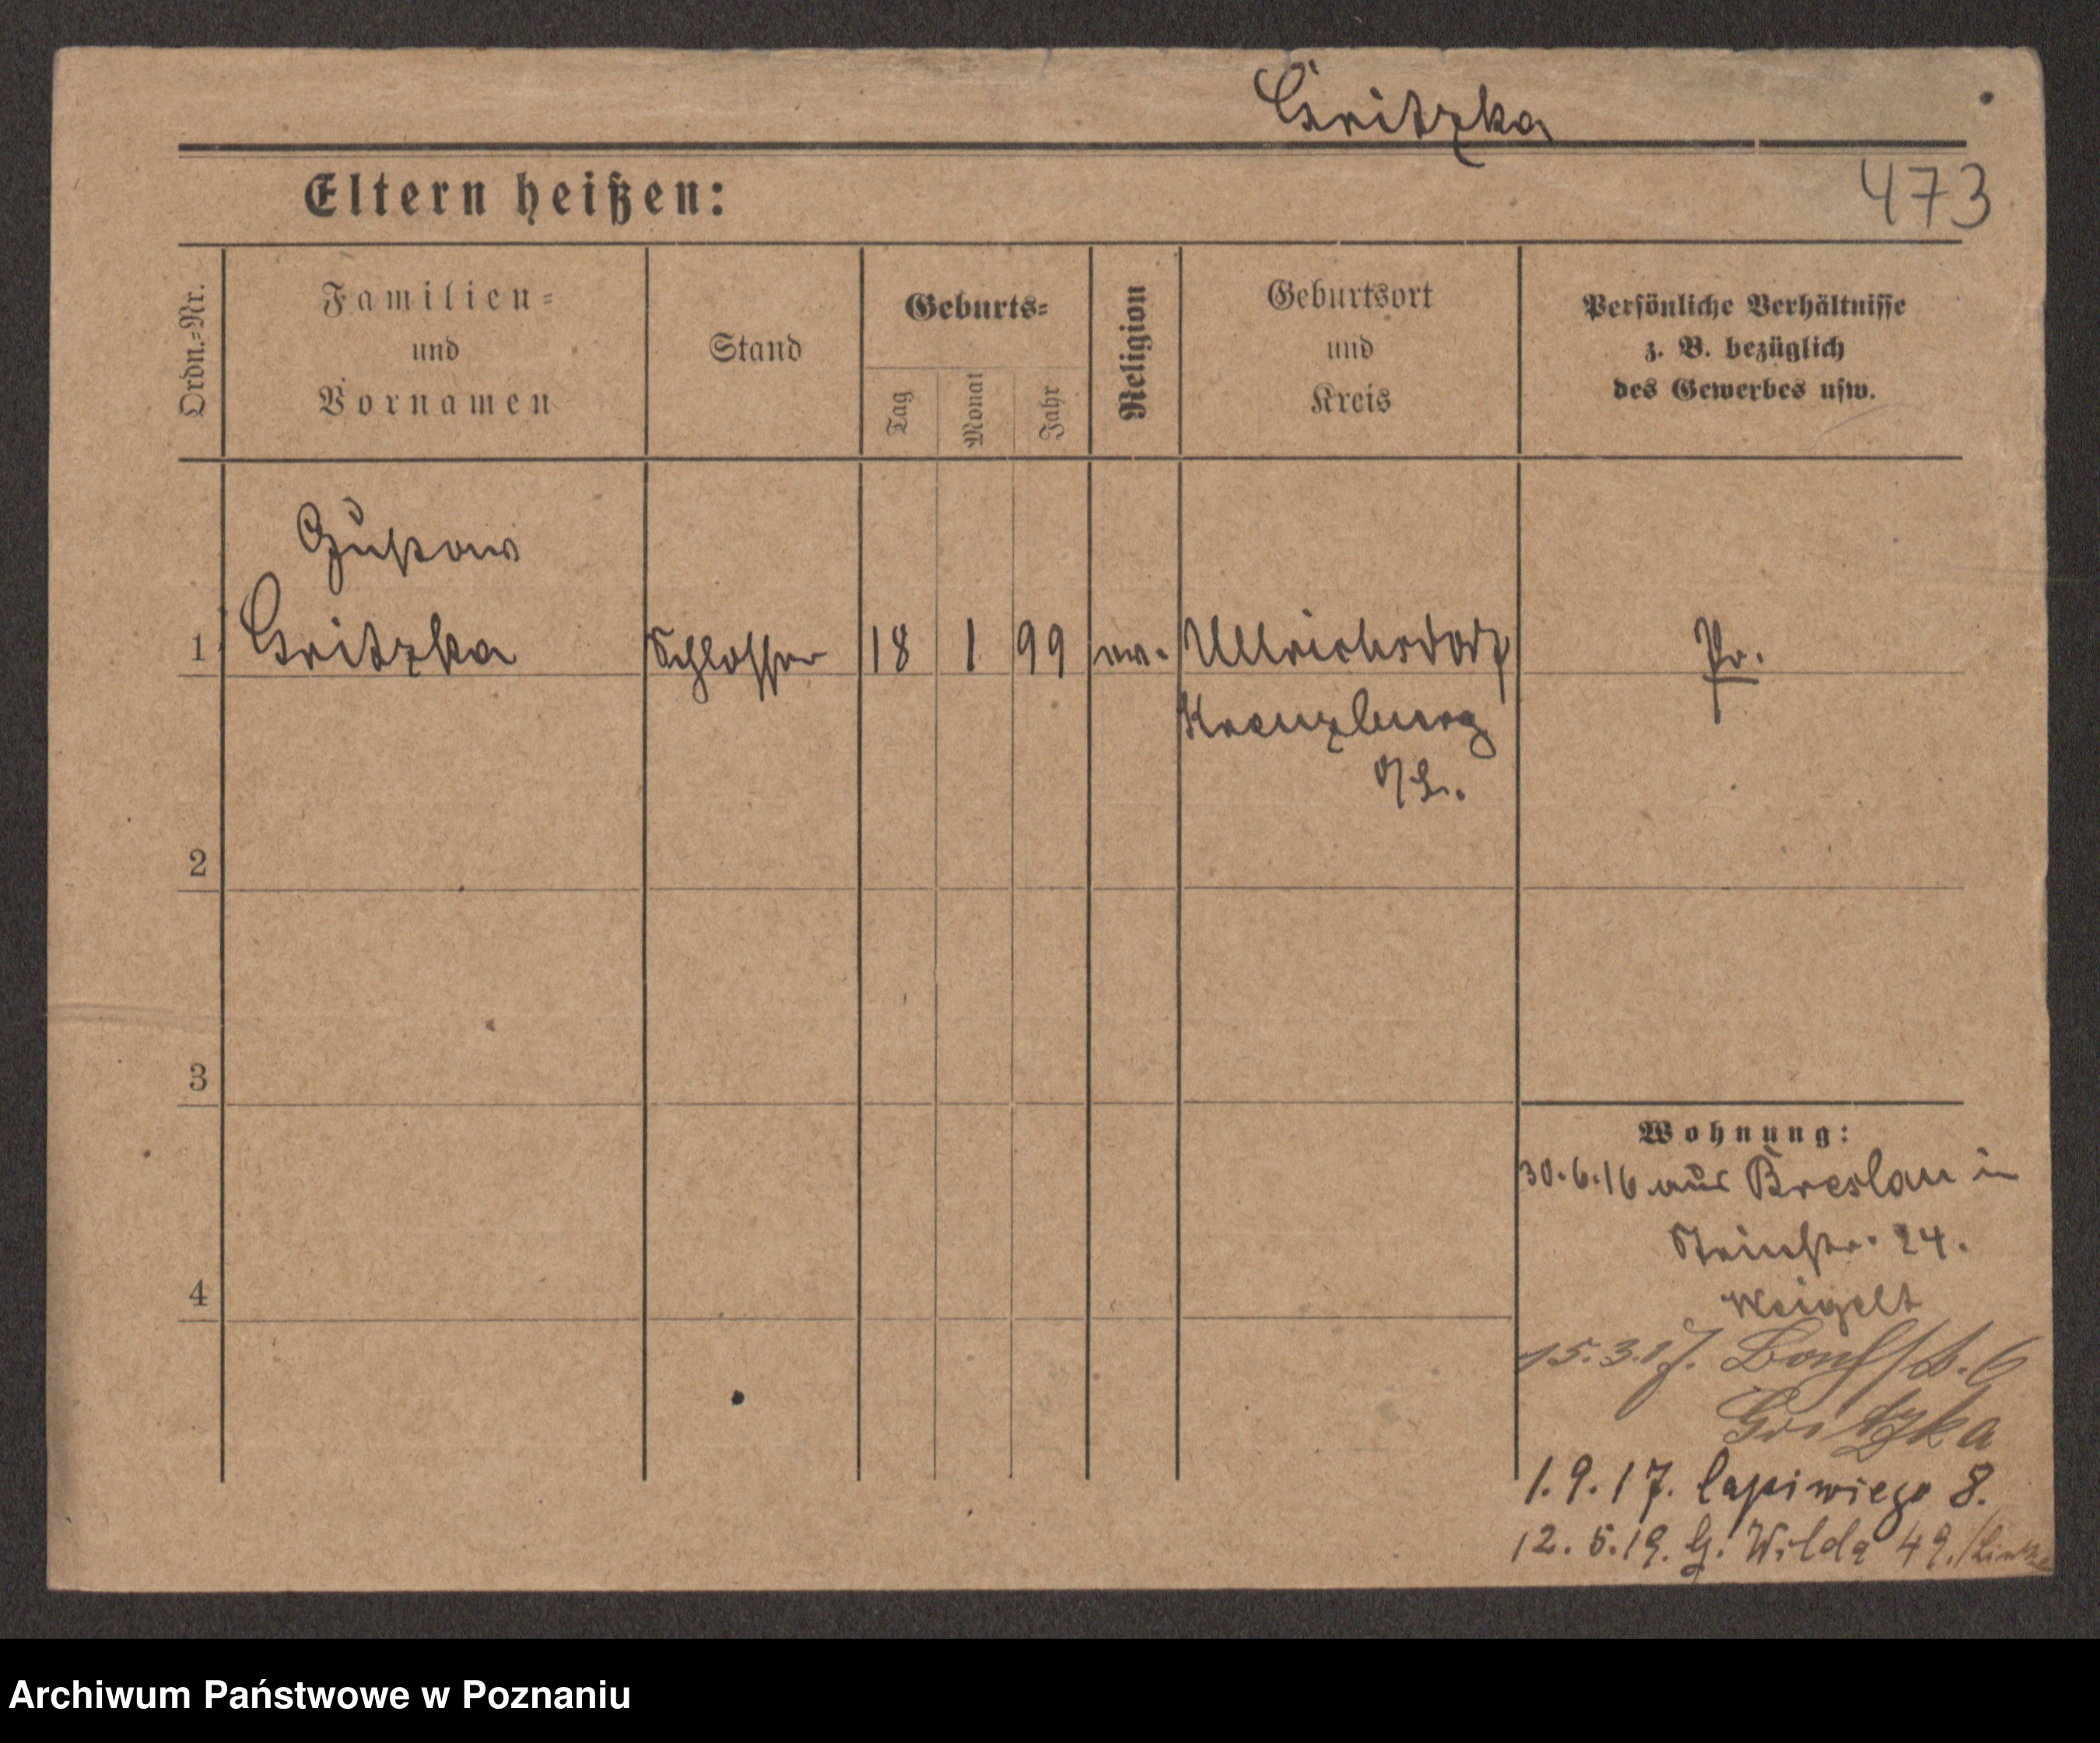 Gritzka
473
Eltern heißen:
Ordn.-Nr.
Familien-
und
Vornamen
Stand
Geburts-
Tag
Monat
Jahr
Religion
Geburtsort
und
Kreis
Persönliche Verhältnisse
z. B. bezüglich
des Gewerbes usw.
Gustav
1 Gritzka Schlosser 18 1 99 ev. Ullrichsdorf Pr.
Kreuzburg
O/S.
2
3
4
Wohnung:
30.6.16 aus Breslau in
Steinstr. 24.
Weigelt
15.3.17. 6
Gritzka
1.9.17. 8.
12.5.19. G. Wilda 49.
Archiwum Państwowe w Poznaniu